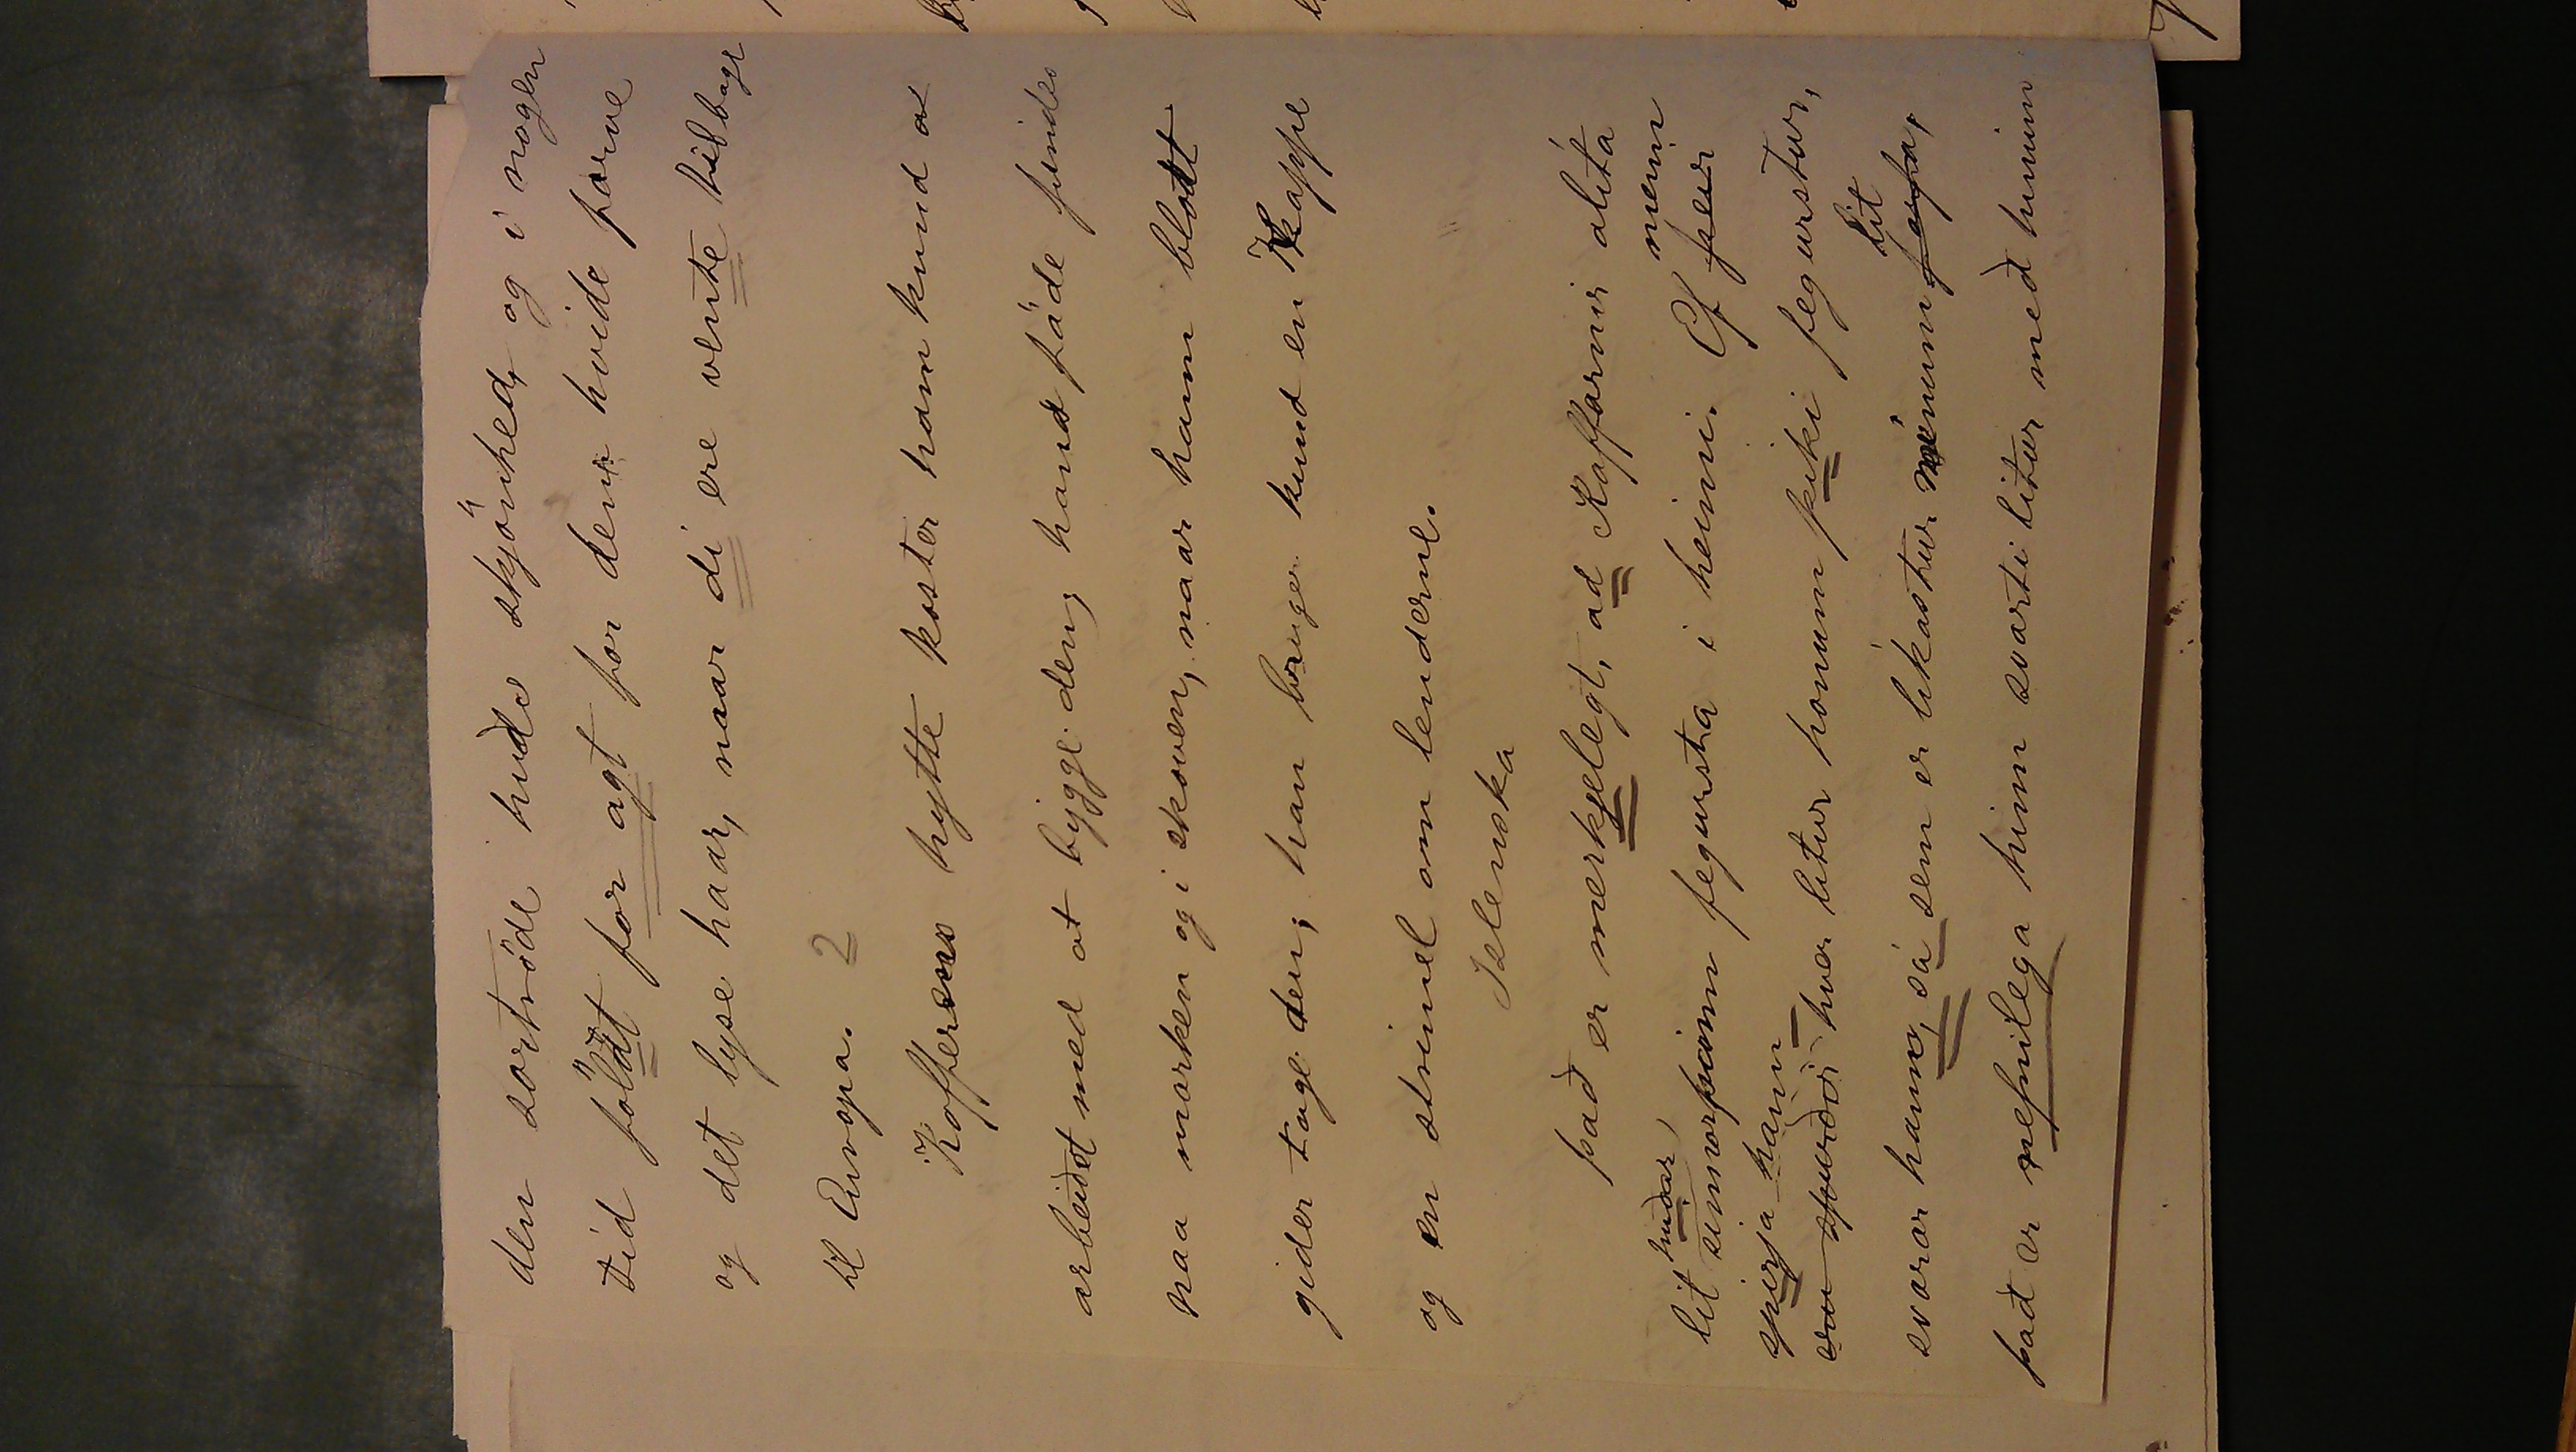 den sortröde huds skjönhed, og i nogen
tid fölat for agt for den hvide farve
og det lyse haar, naar di ere vente tilbage
til Europa. 2
Kofferens hytte koster ham kund at
arbeidet med at bygge den; hans fäde findes
paa marken og i skoven, naar ham blott
gider tage den; han bruger kund en Kappe
og en strimel om lenderne.
Islenska
það er merkjelegt, ad Kaffarnir álita
húðar, menn
lit sinn fegursta i heimi. Ef þeir
spirja hann
hver litur honum þiki fegurstur,
lit
svarar hann, sá sem er líkastur mínum farfa,
það er nefnilega hinn svarti litur með hinum